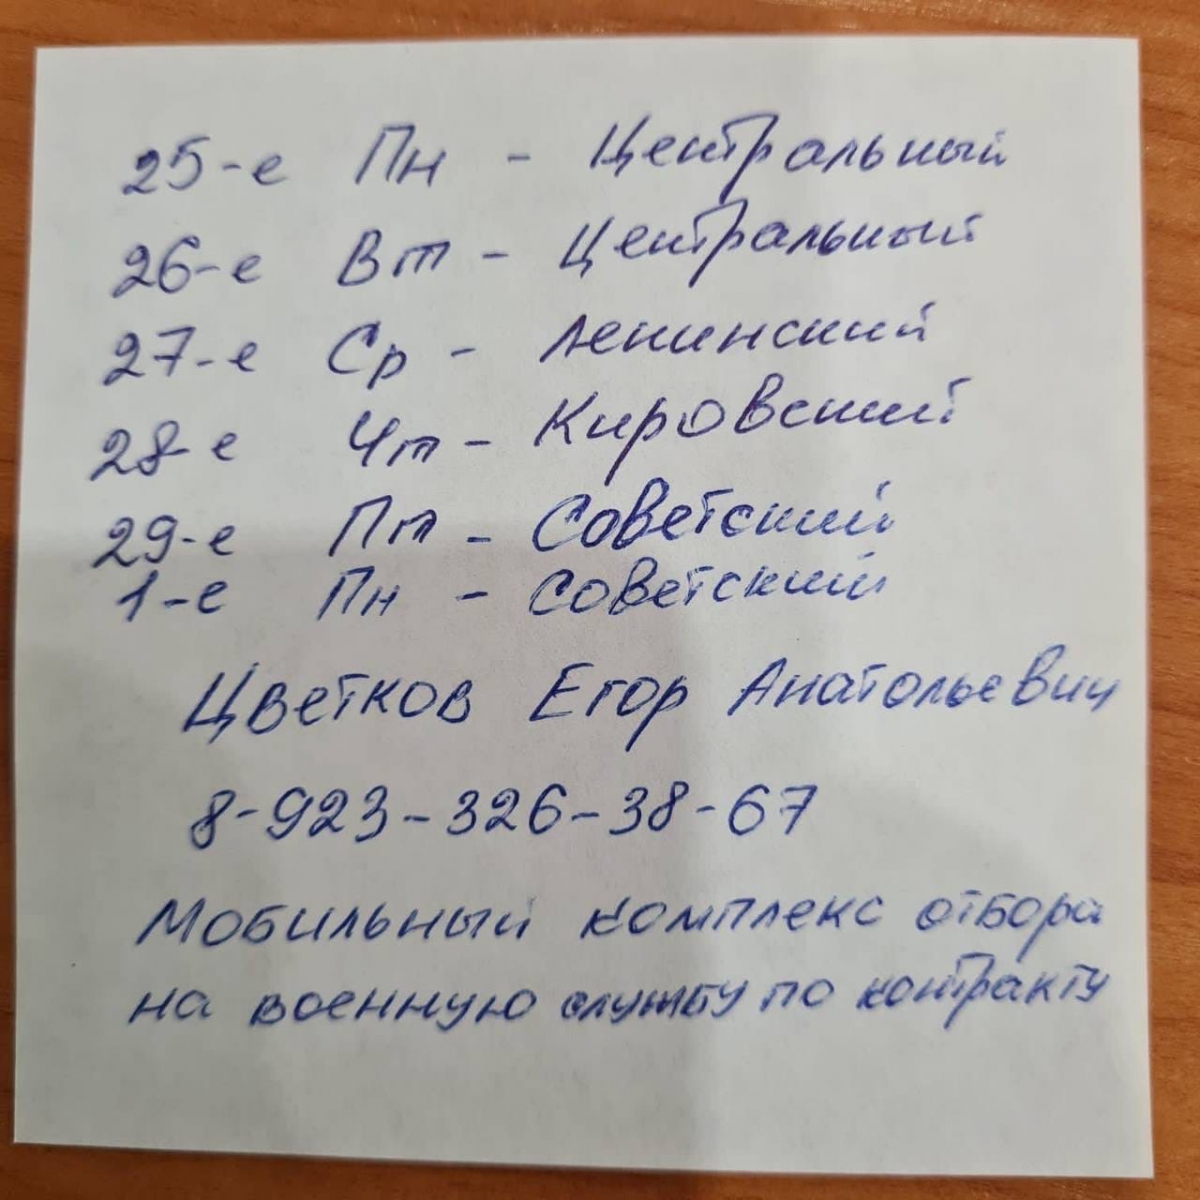 25-е Пн - Центральный
26-е Вт - Центральный
27-е Ср - Ленинский
28-е Чт - Кировский
29-е Пт - Советский
1-е Пн - Советский
Цветков Егор Анатольевич
8-923-326-38-67
Мобильный комплекс отбора
на военную службу по контракту